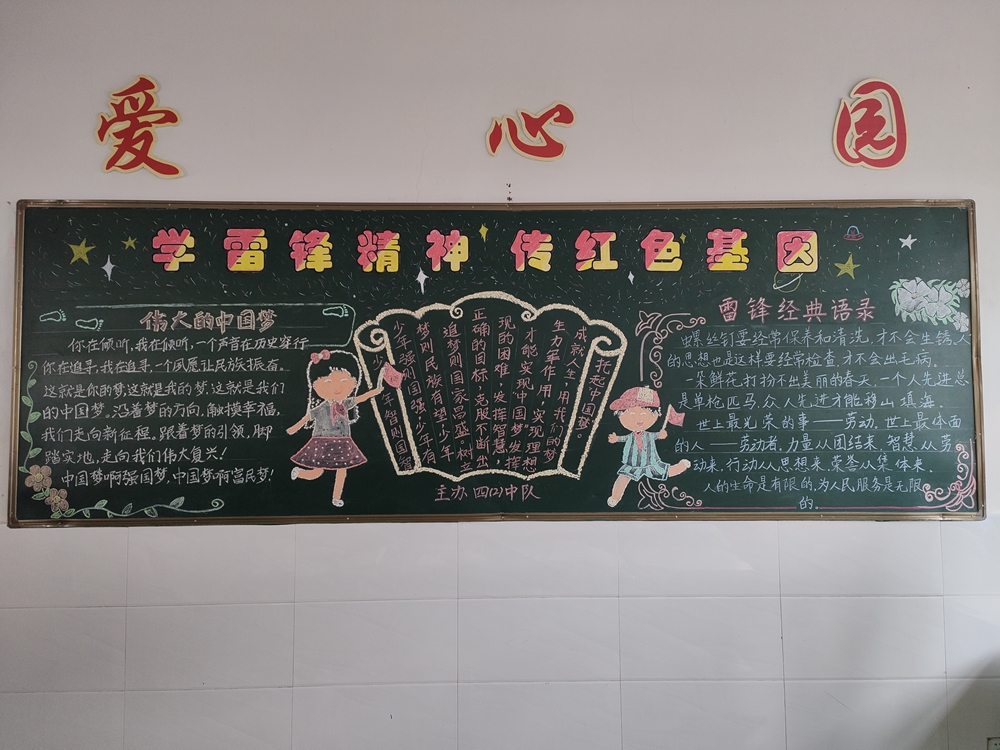 爱 心 园
学雷锋精神 传红色基因
伟大的中国梦
你在倾听,我在倾听,一个声音在历史穿行
你在追寻,我在追寻,一个夙愿让民族振奋。
这就是你的梦,这就是我的梦,这就是我们
的中国梦。沿着梦的方向,触摸幸福,
我们走向新征程。跟着梦的引领,脚
踏实地,走向我们伟大复兴!
中国梦啊强国梦,中国梦啊富民梦!
少年智则国智
少年强则国强少年有
梦则民族有望少年
追梦则国家昌盛。树立
正确的目标,克服不断出
现的困难,发挥智慧,
才能实现“中国梦”发挥
生力军作用,实现理想
成就人生,用我们的梦
托起中国梦。
主办 四(2)中队
雷锋经典语录
螺丝钉要经常保养和清洗,才不会生锈,人
的思想也是这样要经常检查,才不会出毛病。
一朵鲜花打扮不出美丽的春天,一个人先进总
是单枪匹马,众人先进才能移山填海。
世上最光荣的事——劳动,世上最体面
的人——劳动者,力量从团结来,智慧从劳
动来,行动从思想来,荣誉从集体来.
人的生命是有限的,为人民服务是无限
的.